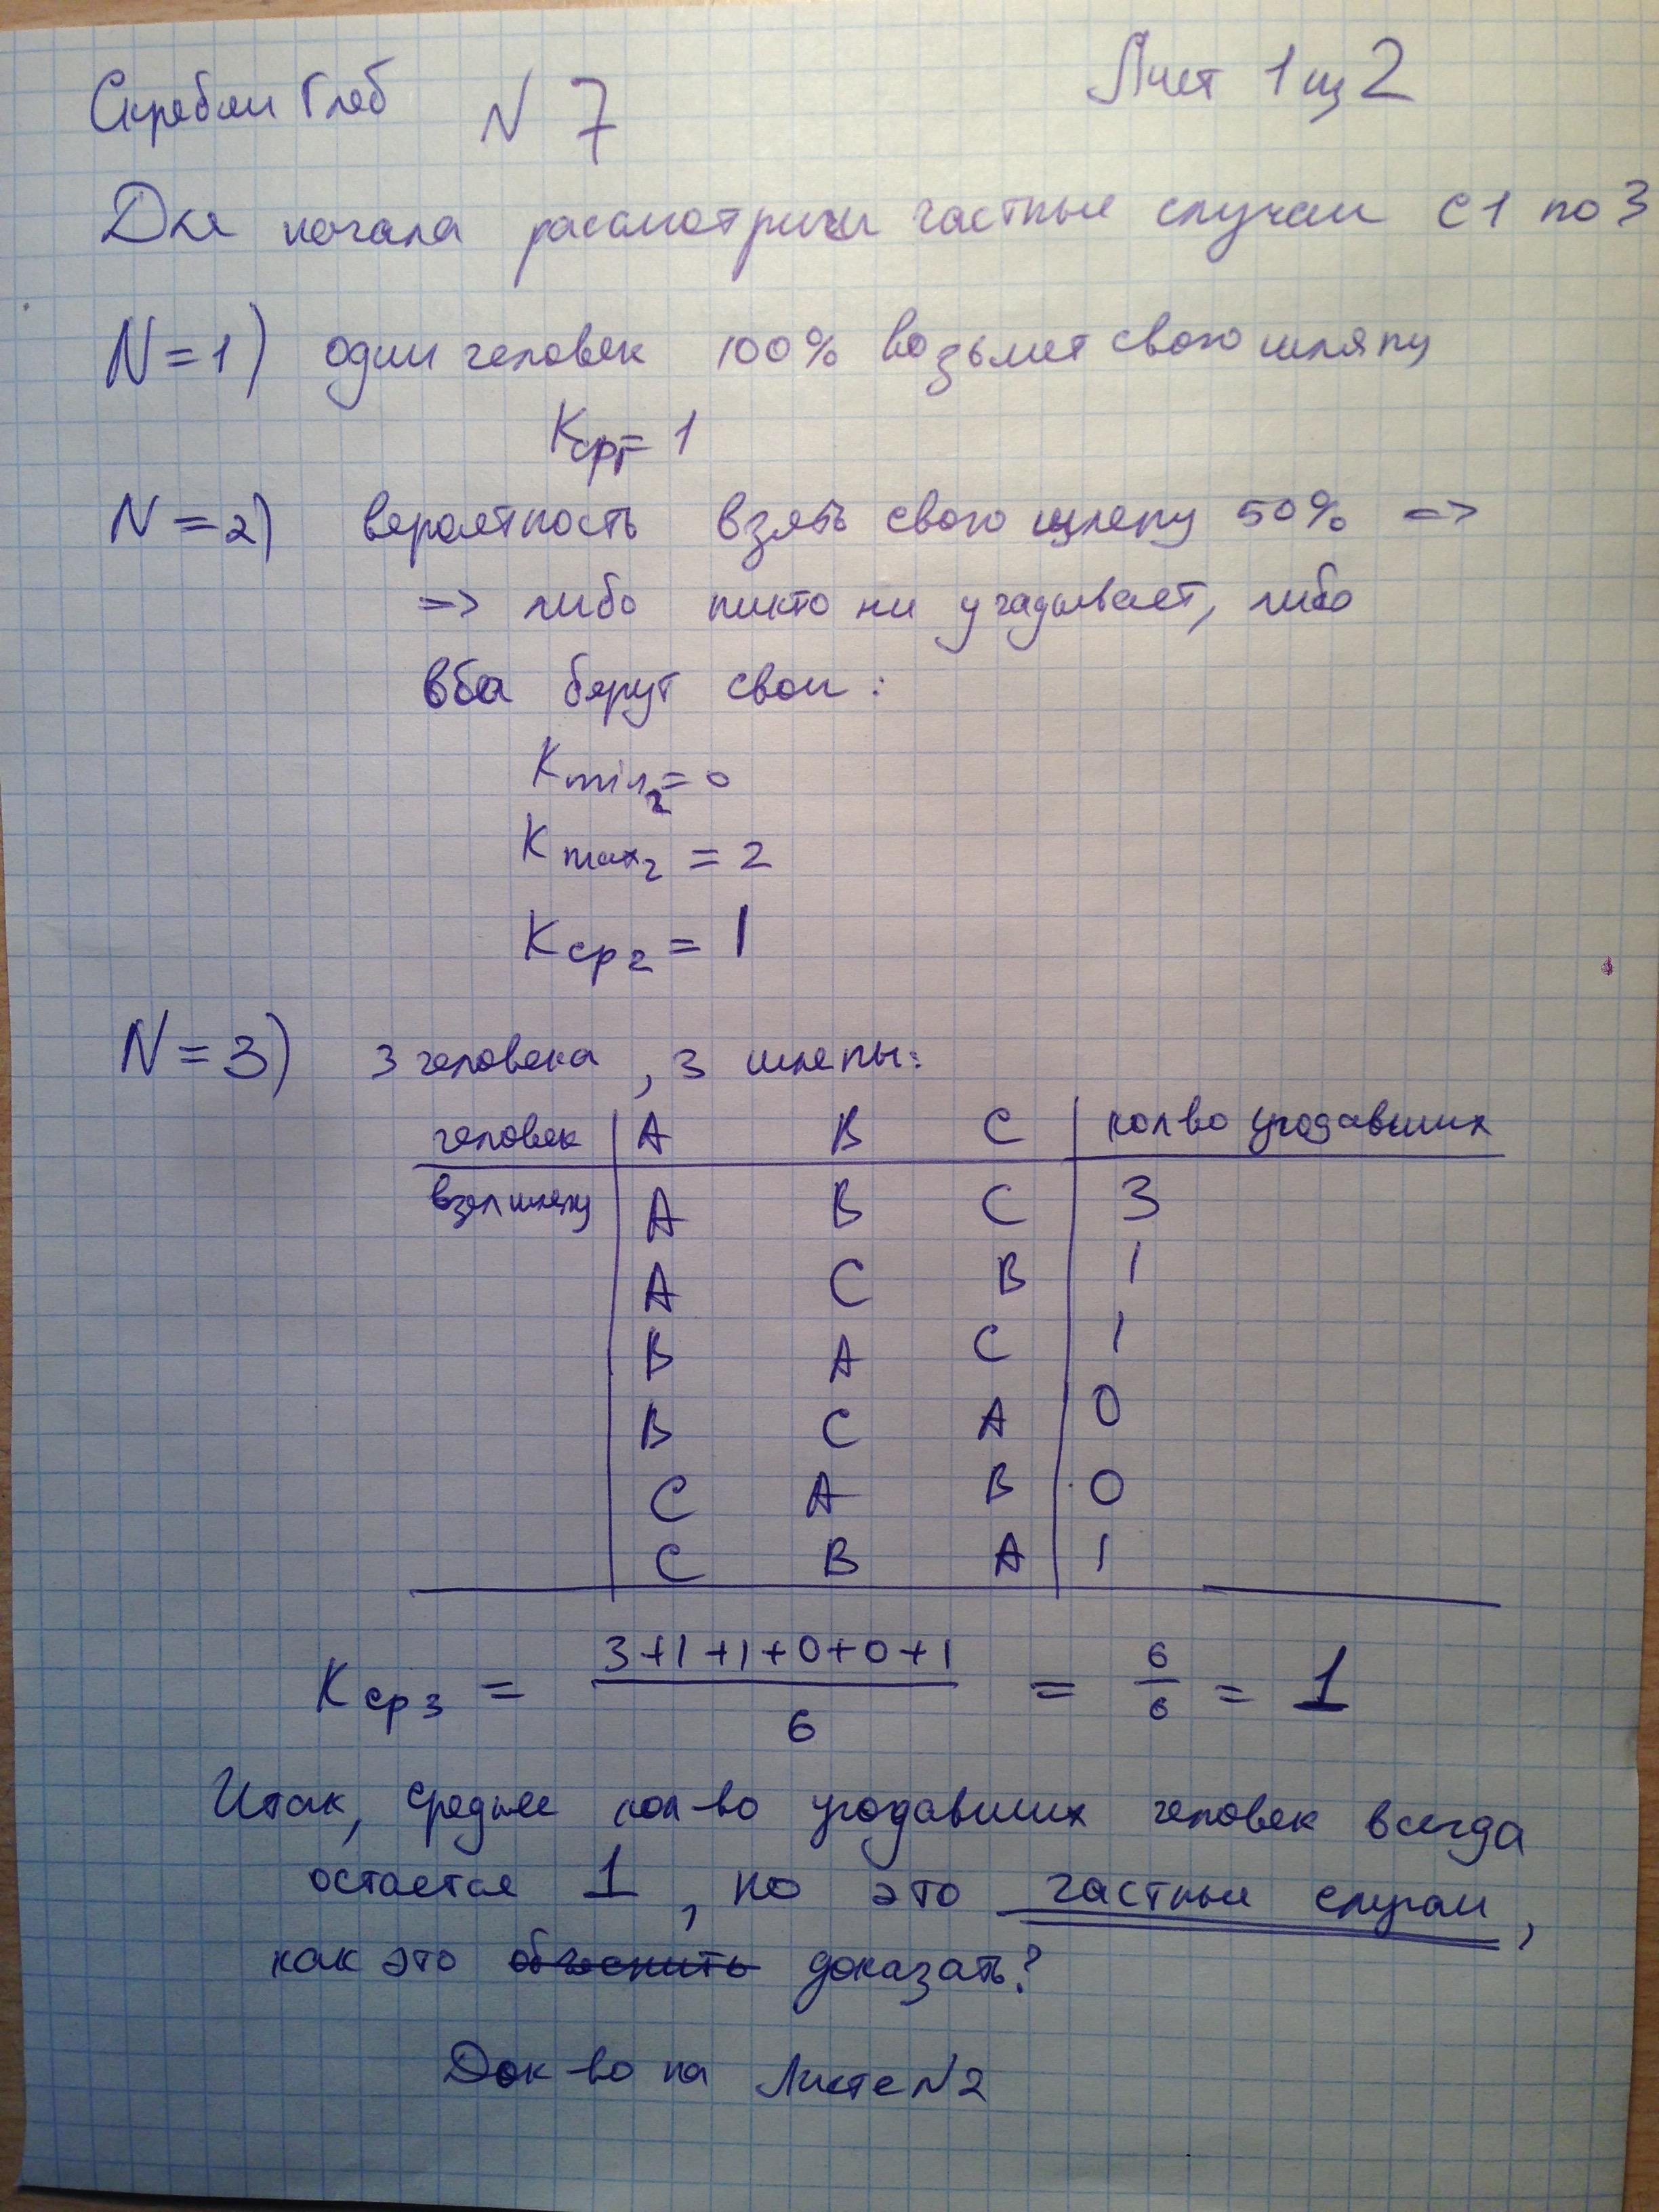 Скрябин Глеб N 7 Лист 1 из 2
Для начала рассмотрим частные случаи с 1 по 3
N=1) один человек 100% возьмет свою шляпу
Kср1=1
N=2) вероятность взять свою шляпу 50% =>
=> либо никто ни угадывает, либо
оба берут свои:
Kmin2=0
Kmax2 = 2
Kср2 = 1
N=3) 3 человека, 3 шляпы:
человек A B C кол-во угодавших
взял шляпу A B C 3
A C B 1
B A C 1
B C A 0
C A B 0
C B A 1
Kср3 = 3+1+1+0+0+1 / 6 = 6/6 = 1
Итак, среднее кол-во угодавших человек всегда
остается 1, но это частные случаи,
как это объяснить доказать?
Док-во на Листе N2